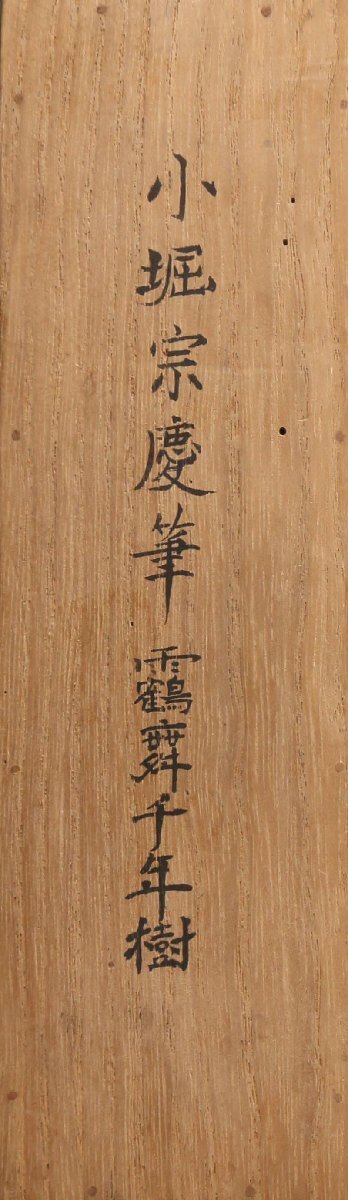 小堀宗慶筆 靏舞千年樹